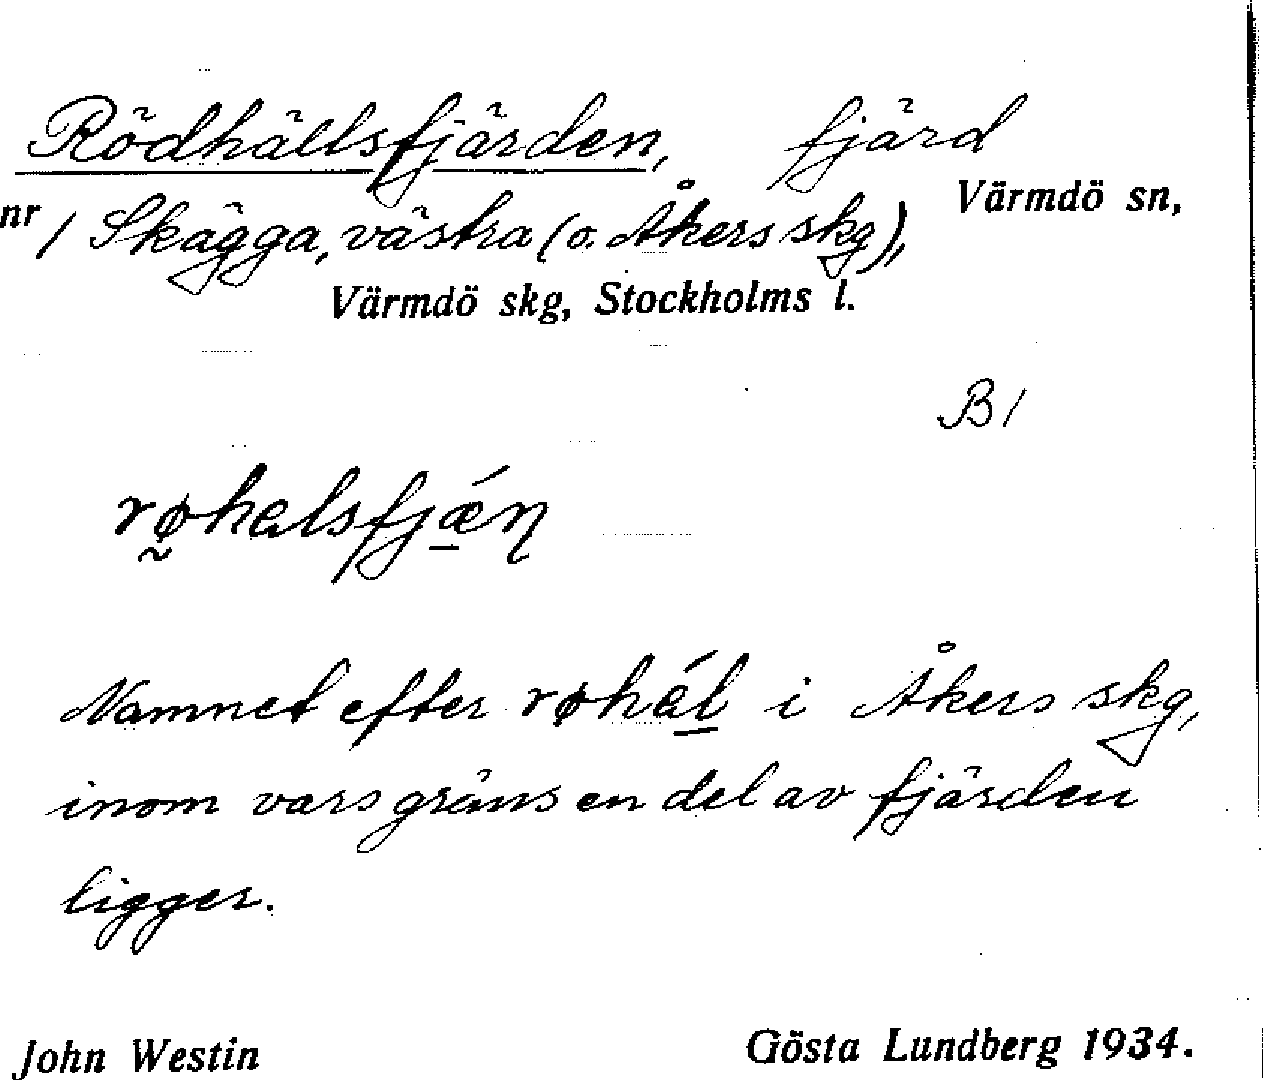 Rödhällsfjärden, fjärd
nr 1 Skägga, västra (o. Åkers skg), Värmdö sn,
Värmdö skg, Stockholms l.
B 1
rø̰halsfjǽ̱ƞ
Namnet efter røhá̱ḻ i Åkers skg,
inom vars gräns en del av fjärden
ligger.
John Westin Gösta Lundberg 1934.